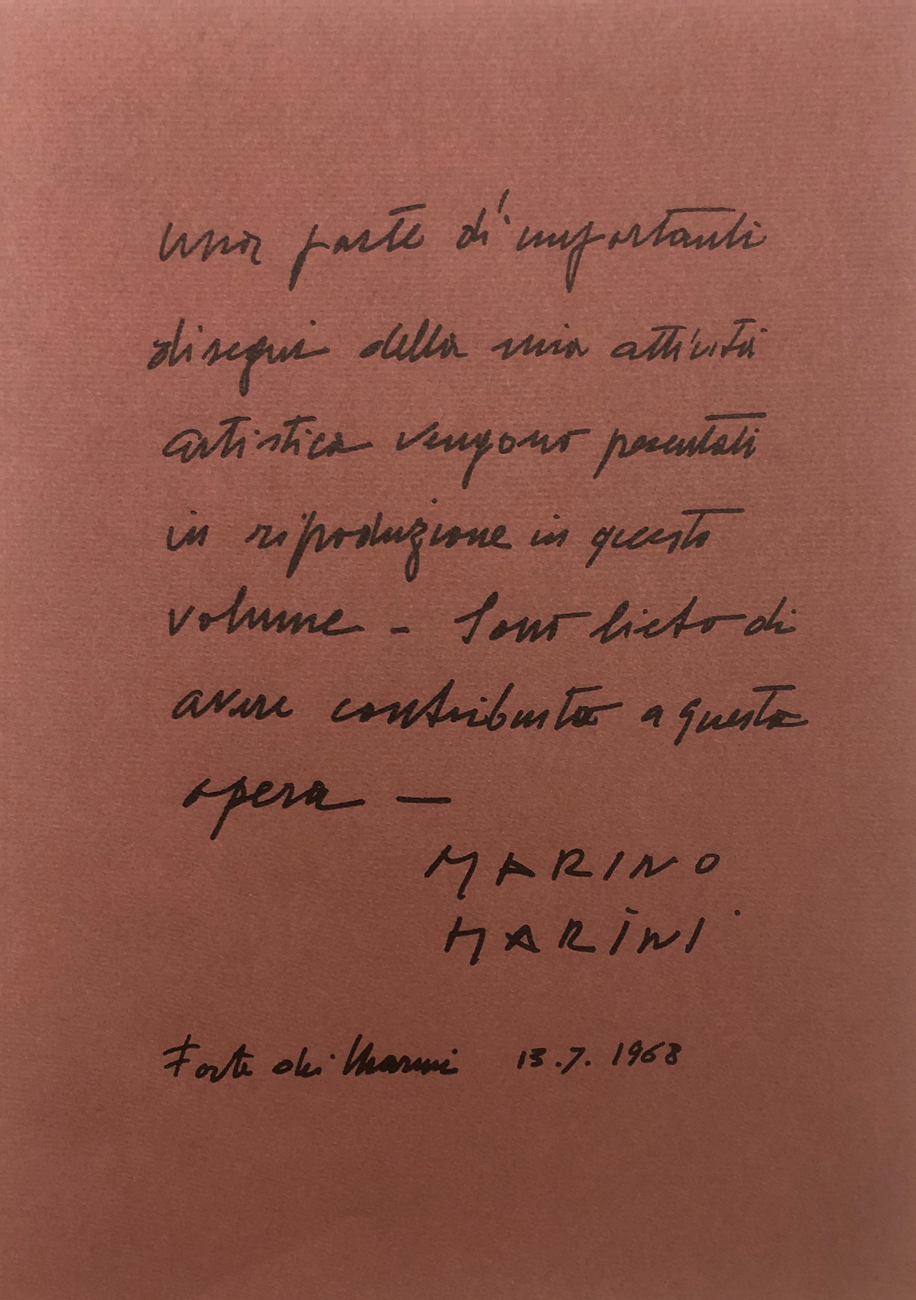 una parte d'importanti
disegni della mia attività
artistica vengono presentati
in riproduzione in questo
volume - Sono lieto di
avere contribuito a questa
opera —
MARINO
MARINI
Forte dei Marmi 13.7.1968